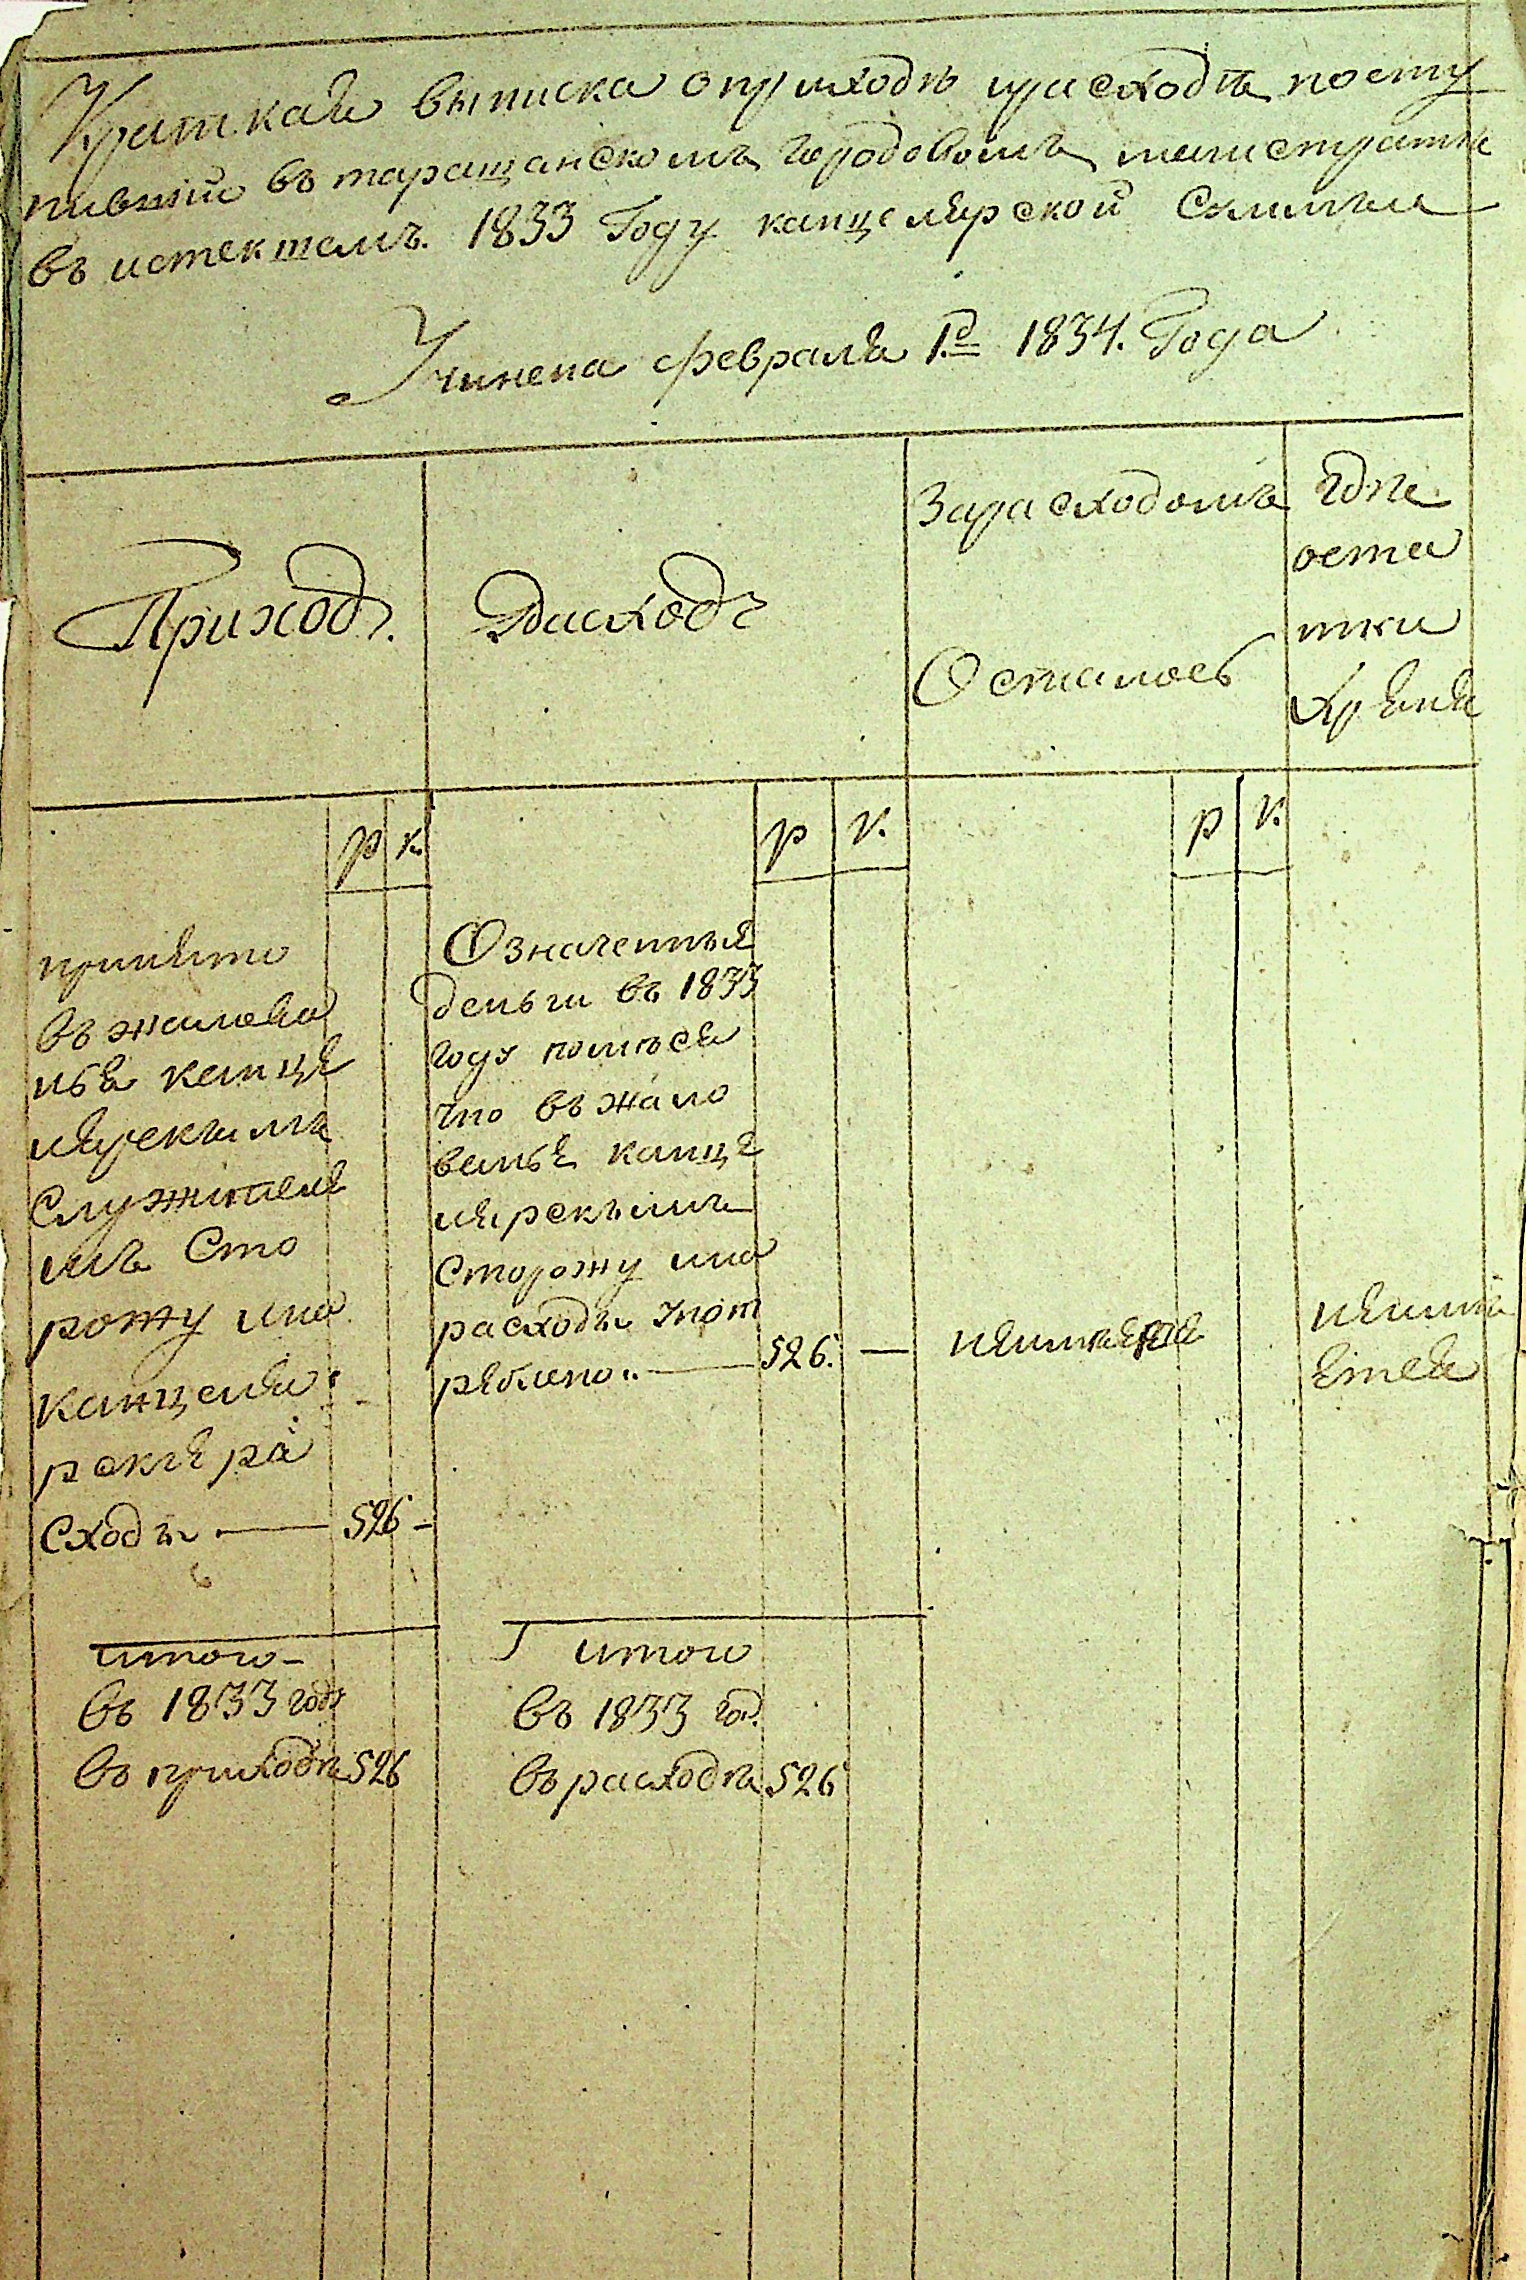 Краткая выписка оприходѣ ирасходѣ посту
пившей въ таращанскомъ городовомъ магистратѣ
въ истекшемъ 1833 Году канцелярской Суммы
Учинена февраля 1.го 1834. Года
Приходъ.
Расходъ
Зарасходомъ
Осталось
гдѣ
оста
тки
хранятся
р к.
р к.
р к.
принято
въ жалова
нье канце
лярскимъ
Служителя
мъ Сто
рожу ина
канцеля
рские ра
сходы — 526 –
Означенные
деньги въ 1833
году помѣся
чно въ жало
ванье канце
лярскимъ
Сторожу ина
расходы упот
реблено. — 526. —
неимеется
неимѣ
ется
итого
въ 1833 году
въ приходѣ 526
итого
въ 1833 год.
въ расходѣ 526